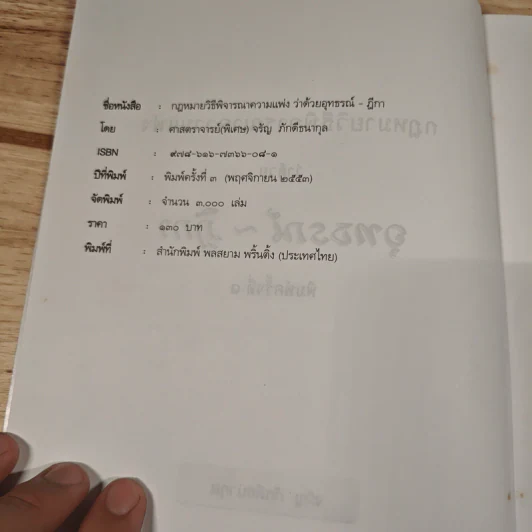 ชื่อหนังสือ : กฎหมายวิธีพิจารณาความแพ่ง ว่าด้วยอุทธรณ์ - ฎีกา
โดย : ศาสตราจารย์(พิเศษ) จรัญ ภักดีธนากุล
ISBN : ๙๗๘-๖๑๖-๗๓๖๖-๐๘-๑
ปีที่พิมพ์ : พิมพ์ครั้งที่ ๓ (พฤศจิกายน ๒๕๕๓)
จัดพิมพ์ : จำนวน ๓,๐๐๐ เล่ม
ราคา : ๑๓๐ บาท
พิมพ์ที่ : สำนักพิมพ์ พลสยาม พริ้นติ้ง (ประเทศไทย)